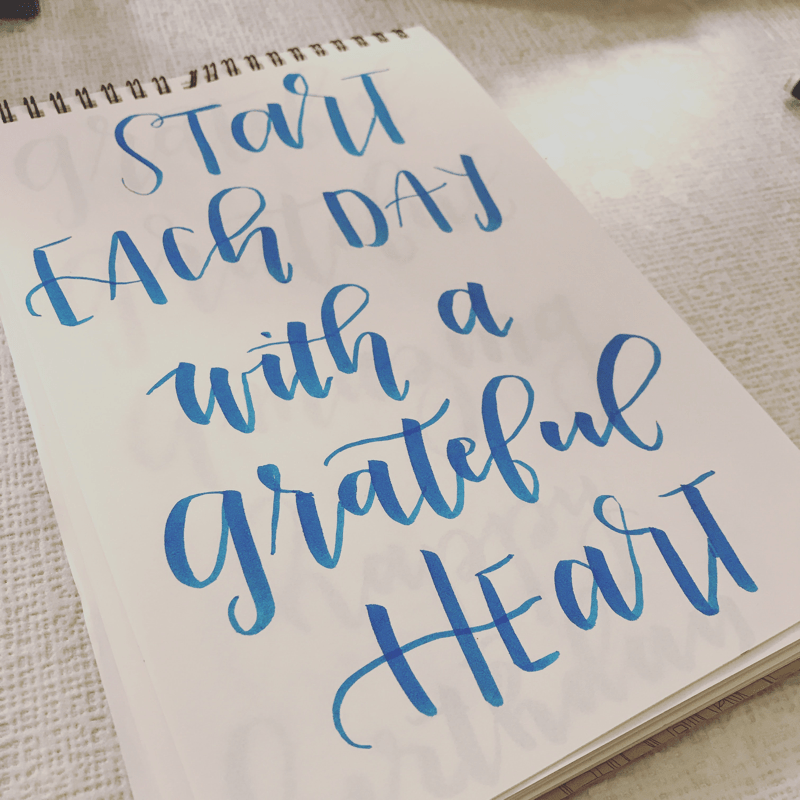 START
EACh DAY
with a
grateful
HEarT